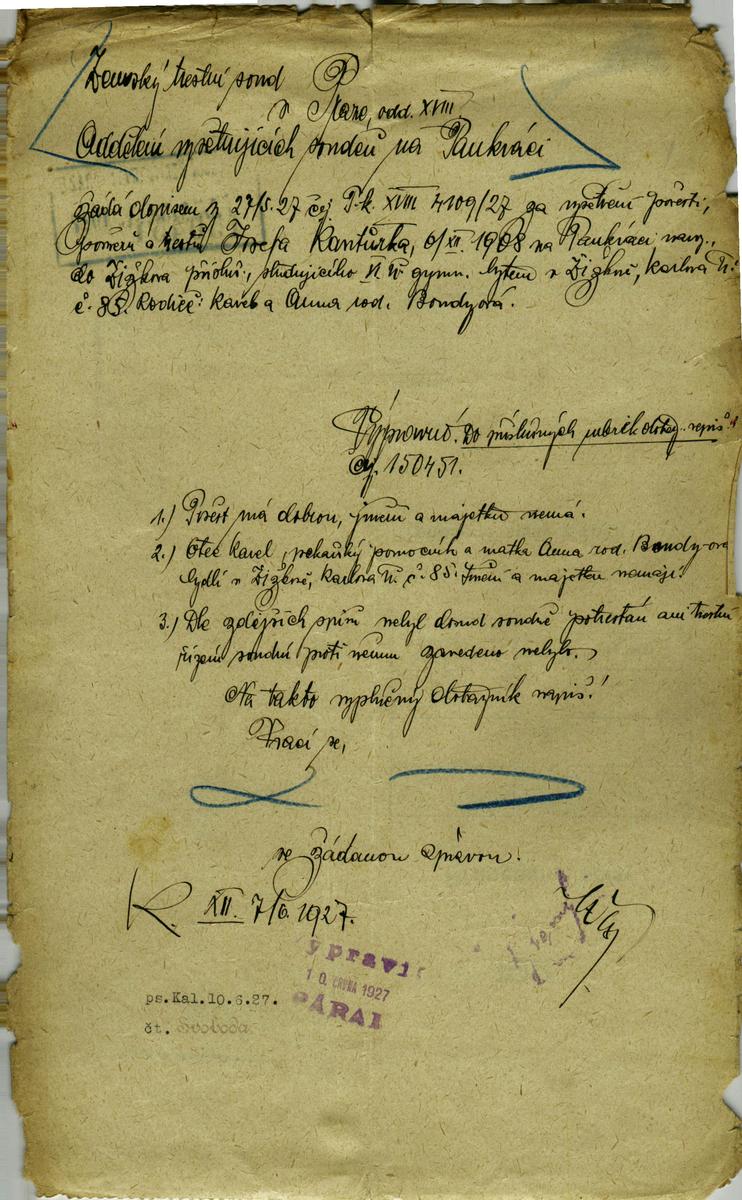 Zemský trestní soud
v Praze, odd. XVIII
Oddělení vyšetřujících soudců na Pankráci
žádá dopisem z 27/5. 27 čj. T.k. XVIII 4109/27 za vyšetření pověsti,
poměrů a trestů Josefa Kantůrka, 6/XII. 1908 na Pankráci nar.,
do Žižkova přísluš., studujícího gymn. bytem v Žižkově, Karlova tř.
č. 85. Rodiče: Karel a Anna rod. Bondyová.
Výpravně. Do příslušných rubrik dotaz. vepiš
čj. 150451.
1.) Pověst má dobrou, jmění a majetku nemá.
2.) Otec Karel, pekařský pomocník a matka Anna rod. Bondy-ová
bydlí v Žižkově, Karlova tř. č. 85. Jmění a majetku nemají.
3.) Dle zdejších spisů nebyl dosud soudně potrestán ani trestní
řízení soudní proti němu zavedeno nebylo.
Na takto vyplněný dotazník napiš!
Vrací se,
se žádanou zprávou.
K. XII. 7/6. 1927.
ypravi
10. ČRVNA 1927
ps.Kal.10.6.27.
čt. Svoboda